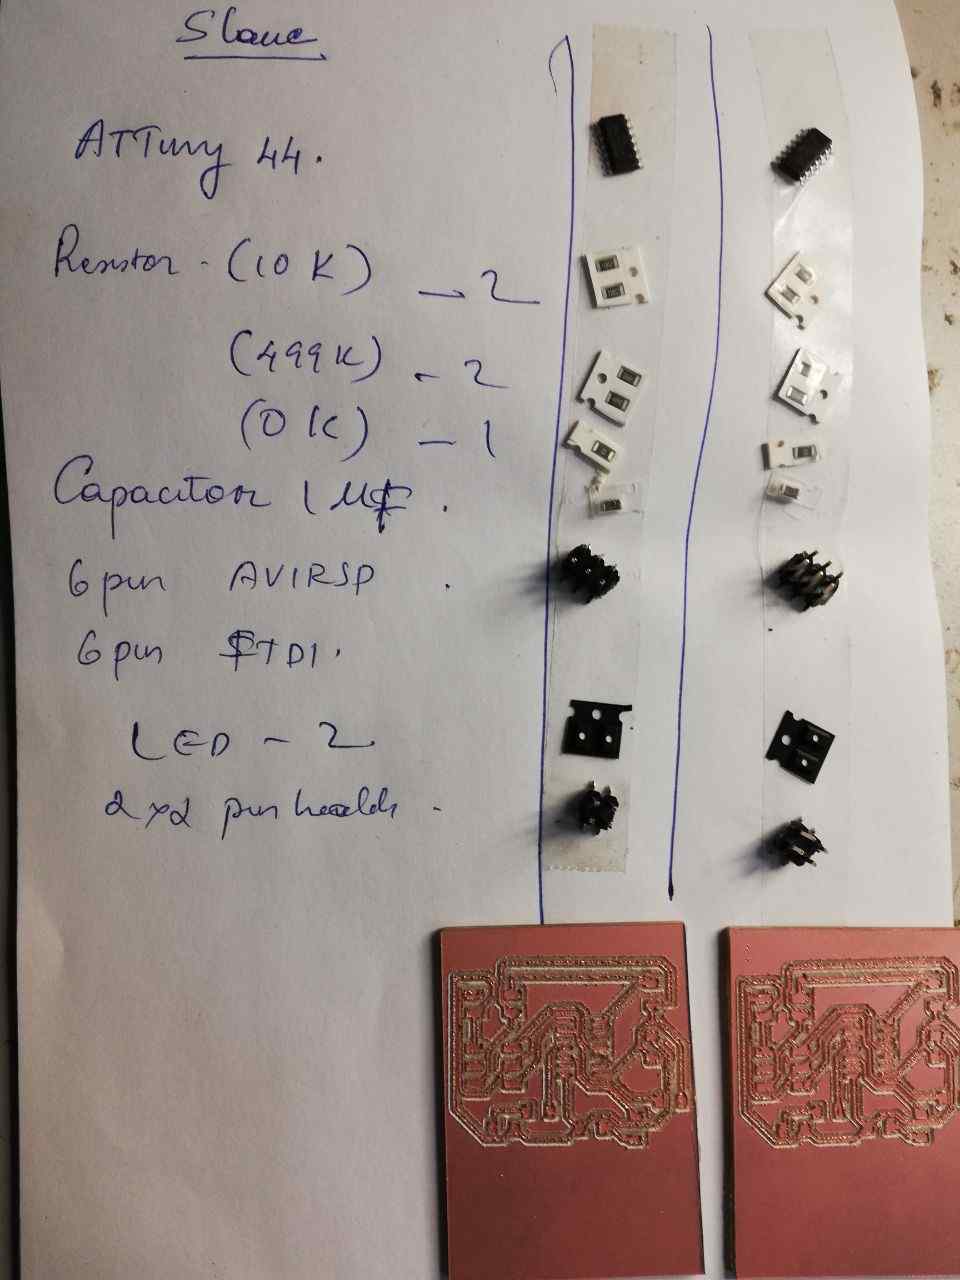 Slave
ATTiny 44.
Resistor - (10 K) - 2
(499K) - 2
(0 K) - 1
Capacitor 1 uF.
6 pin AVIRSP .
6 pin FTDI.
LED - 2
2x2 pin heads .